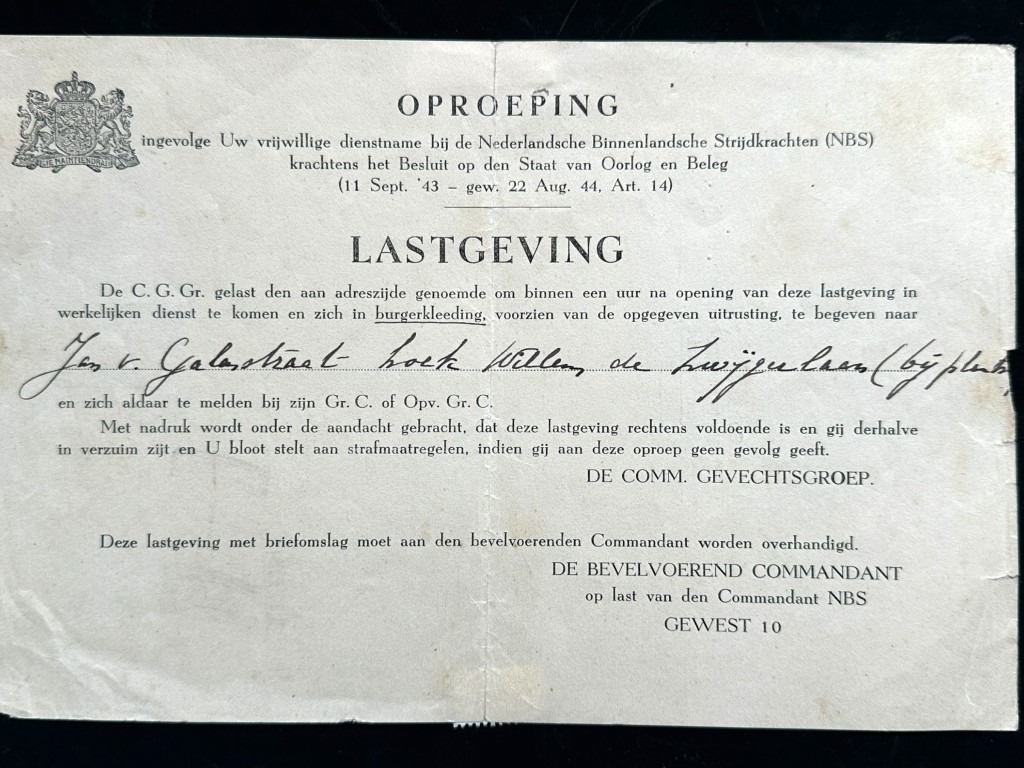 JE MAINTIENDRAI
OPROEPING
ingevolge Uw vrijwillige dienstname bij de Nederlandsche Binnenlandsche Strijdkrachten (NBS)
krachtens het Besluit op den Staat van Oorlog en Beleg
(11 Sept. '43 – gew. 22 Aug. 44, Art. 14)
LASTGEVING
De C. G. Gr. gelast den aan adreszijde genoemde om binnen een uur na opening van deze lastgeving in
werkelijken dienst te komen en zich in burgerkleeding, voorzien van de opgegeven uitrusting, te begeven naar
Jan v. Galenstraat hoek Willem de Zwijgerlaan (bij
en zich aldaar te melden bij zijn Gr. C. of Opv. Gr. C.
Met nadruk wordt onder de aandacht gebracht, dat deze lastgeving rechtens voldoende is en gij derhalve
in verzuim zijt en U bloot stelt aan strafmaatregelen, indien gij aan deze oproep geen gevolg geeft.
DE COMM. GEVECHTSGROEP.
Deze lastgeving met briefomslag moet aan den bevelvoerenden Commandant worden overhandigd.
DE BEVELVOEREND COMMANDANT
op last van den Commandant NBS
GEWEST 10